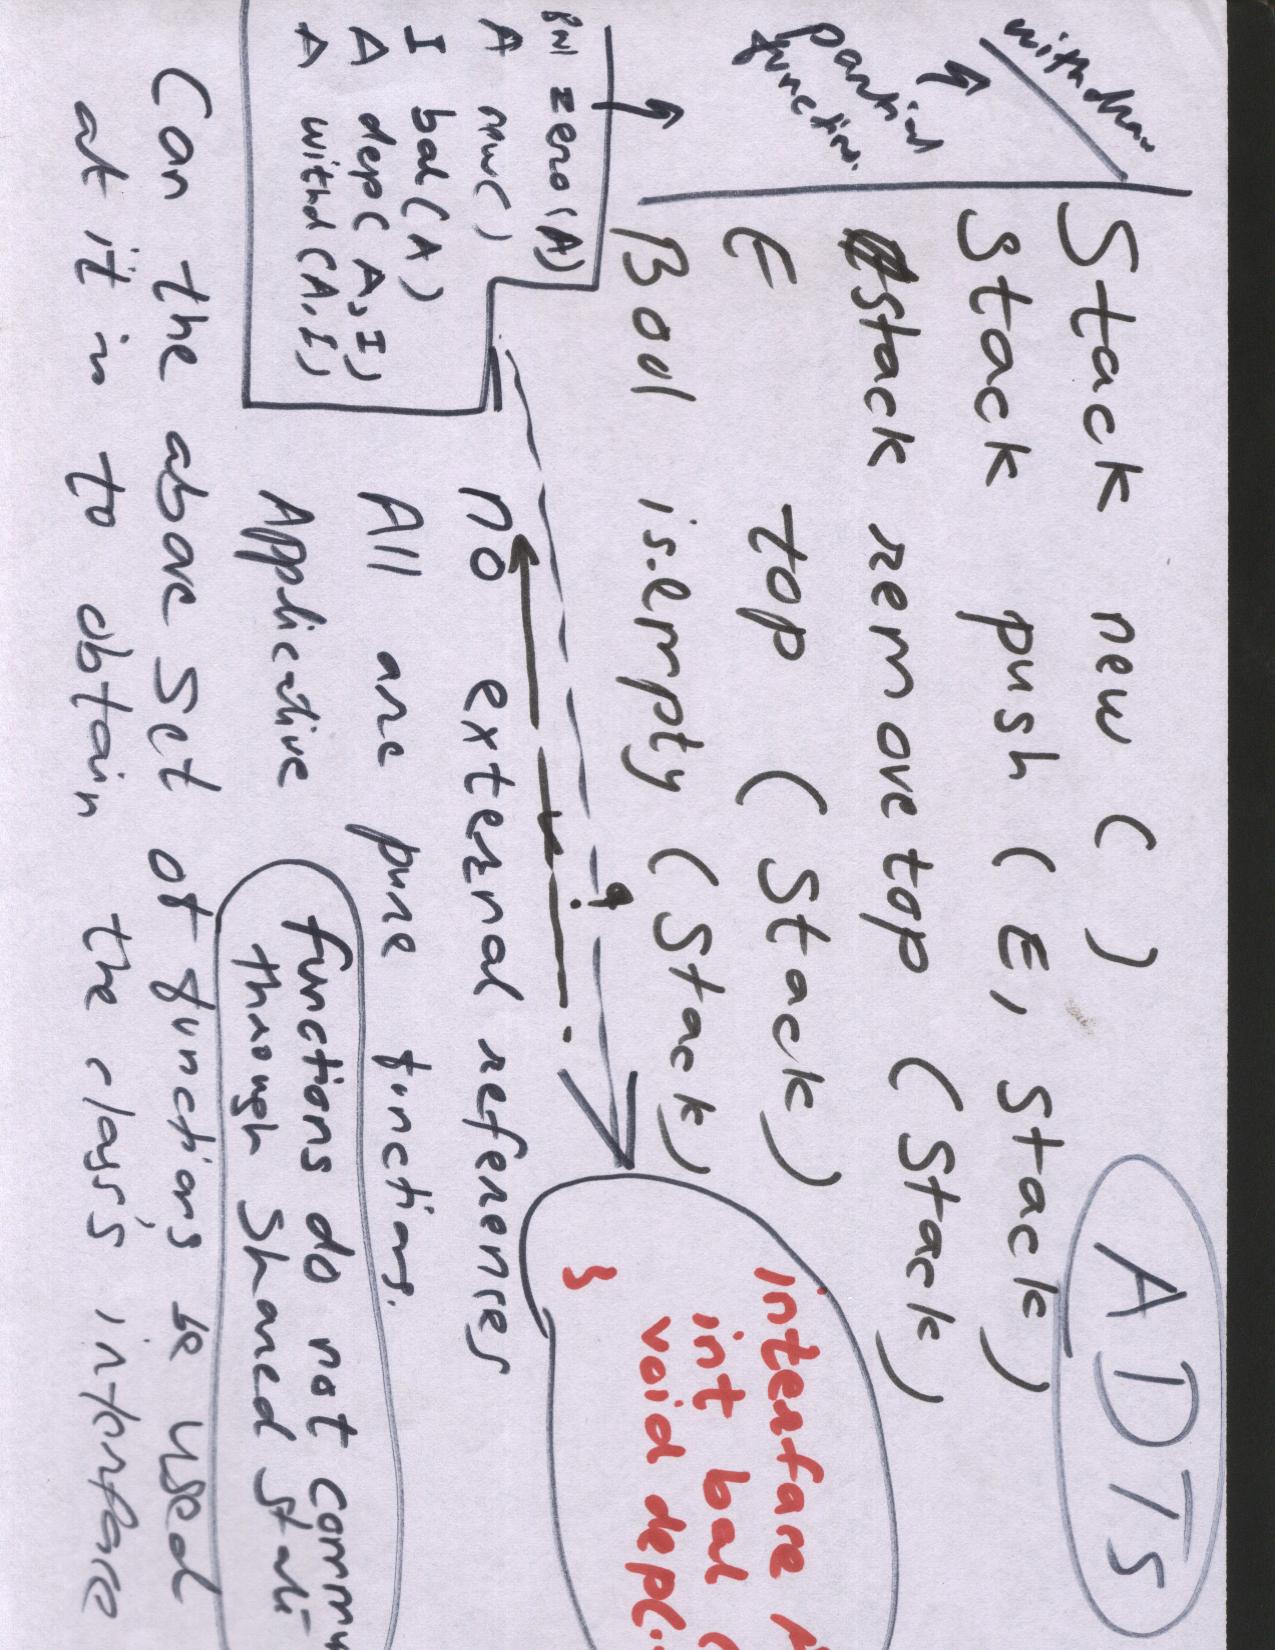 ADTS
withdraw
partial
function.
Stack new ( )
Stack push ( E, Stack )
Stack removetop ( Stack )
E top ( Stack )
Bool isempty ( Stack )
zero (A)
A new( )
I bal (A)
A dep( A, I )
A withd (A, I)
interface
int bal (
void dep(..
}
?
no external references
All are pure functions.
Applicative
functions do not commu
through shared stat
Can the above set of functions be used
at it is to obtain the class's interface